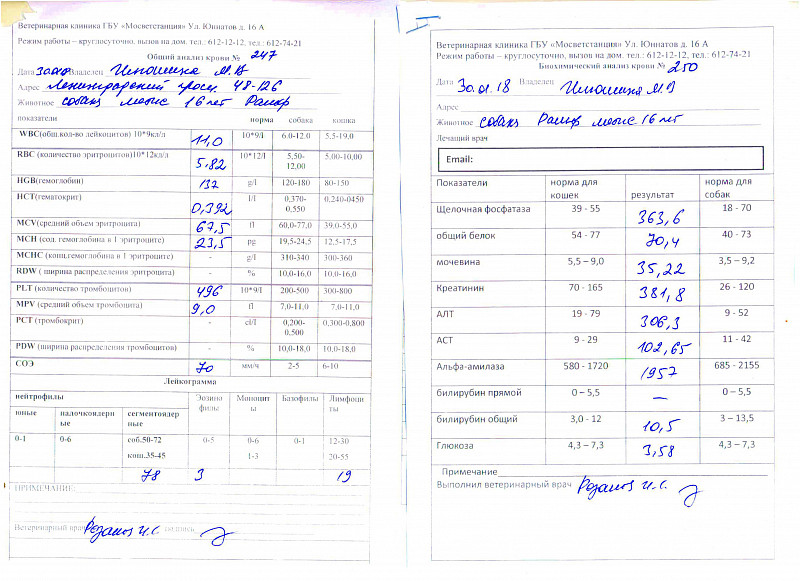 Ветеринарная клиника ГБУ «Мосветстанция» Ул. Юннатов д. 16 А
Режим работы – круглосуточно, вызов на дом. тел.: 612-12-12, тел.: 612-74-21
Общий анализ крови № 247
Дата Владелец М.В
Адрес Ленинградский просп. 48-126
Животное собака метис 16 лет
показатели норма собака кошка
WBC(общ.кол-во лейкоцитов) 10*9кл/л 11,0 10*9/l 6.0-12.0 5,5-19,0
RBC (количество эритроцитов)10*12кл/л 5,82 10*12/l 5,50-12,00 5,00-10,00
HGB(гемоглобин) 137 g/l 120-180 80-150
HCT(гематокрит) 0,392 l/l 0,370-0,550 0,240-0450
MCV(средний объем эритроцита) 67,5 fl 60,0-77,0 39,0-55,0
MCH (сод. гемоглобина в 1 эритроците) 23,5 pg 19,5-24,5 12,5-17,5
MCHC (конц.гемоглобина в 1 эритроците) g/l 310-340 300-360
RDW ( ширина распределения эритроцита) - % 10,0-16,0 10,0-16,0
PLT (количество тромбоцитов) 496 10*9/l 200-500 300-800
MPV (средний объем тромбоцита) 9,0 fl 7,0-11,0 7,0-11,0
PCT (тромбокрит) - ci/l 0,200-0.500 0,300-0.800
PDW (ширина распределения тромбоцитов) - % 10,0-18,0 10,0-18,0
СОЭ 70 мм/ч 2-5 6-10
Лейкограмма
нейтрофилы Эозинофилы Моноциты Базофилы Лимфоциты
юные палочкоядерные сегментоядерные
0-1 0-6 соб.50-72 0-5 0-6 0-1 12-30
кош.35-45 1-3 20-55
78 3 19
ПРИМЕЧАНИЕ:
Ветеринарный врач И.С. подпись
I
Ветеринарная клиника ГБУ «Мосветстанция» Ул. Юннатов д. 16 А
Режим работы – круглосуточно, вызов на дом. тел.: 612-12-12, тел.: 612-74-21
Биохимический анализ крови № 250
Дата 30.01.18 Владелец
Адрес
Животное собака метис 16 лет
Лечащий врач
Email:
Показатели норма для кошек результат норма для собак
Щелочная фосфатаза 39 - 55 363,6 18 - 70
общий белок 54 - 77 70,4 40 - 73
мочевина 5,5 – 9,0 35,22 3,5 – 9,2
Креатинин 70 - 165 381,8 26 - 120
АЛТ 19 - 79 306,3 9 - 52
АСТ 9 - 29 102,65 11 - 42
Альфа-амилаза 580 - 1720 1957 685 - 2155
билирубин прямой 0 – 5,5 — 0 – 5,5
билирубин общий 3,0 - 12 10,5 3 – 13,5
Глюкоза 4,3 – 7,3 3,58 4,3 – 7,3
Примечание
Выполнил ветеринарный врач И.С.